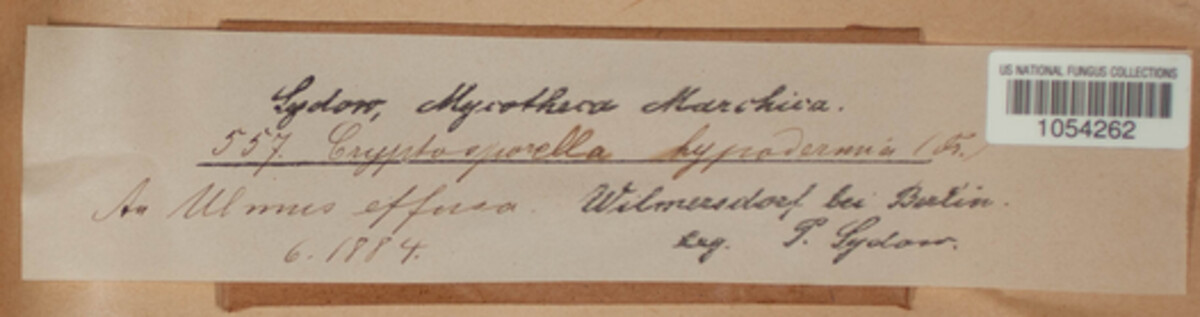 Sydow, Mycotheca Marchica.
557. Cryptosporella hypodermia (Fr.)
An Ulmus effusa. Wilmersdorf bei Berlin.
6. 1884. Leg. P. Sydow.
US NATIONAL FUNGUS COLLECTIONS
1054262